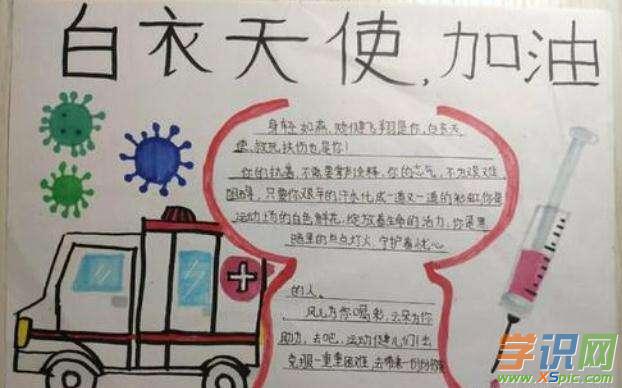 白衣天使,加油
身轻如燕,矫健飞翔是你,白衣天
使,救死扶伤也是你!
你的执着,不需要掌声诠释,你的志气,不为艰难
阻碍,只要你艰辛的汗水化成一道又一道的彩虹,你是
运动场的白色鲜花,绽放着生命的活力,你是黑
暗里的点点灯火,守护着忧心
的人。
风儿为你喝彩,云朵为你
助力,去吧,运动健儿们!去
克服一重重困难,去带来一份份
学识网
www.XSpic.com